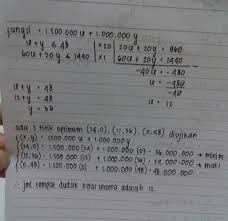 fungsi = 1.500.000 u + 1.000.000 y
u + y ≤ 48 | x20 | 20u + 20y = 960
60u + 20y ≤ 1440 | x1 | 60u + 20y = 1440
-40u = -480
u = -480
-40
u = 12
u + y = 48
12 + y = 48
y = 36
ada 3 titik optimum (24,0), (12,36), (0,48) diujikan
f(x,y) = 1.500.000 u + 1.000.000 y
(24,0) : 1.500.000 (24) + 1.000.000 (0) : 36.000.000 → minim
(12,36) : 1.500.000 (12) + 1.000.000 (36) : 54.000.000 → maks
(0,48) : 1.500.000 (0) + 1.000.000 (48) = 48.000.000
∴ jml tempat duduk utama adalah 12